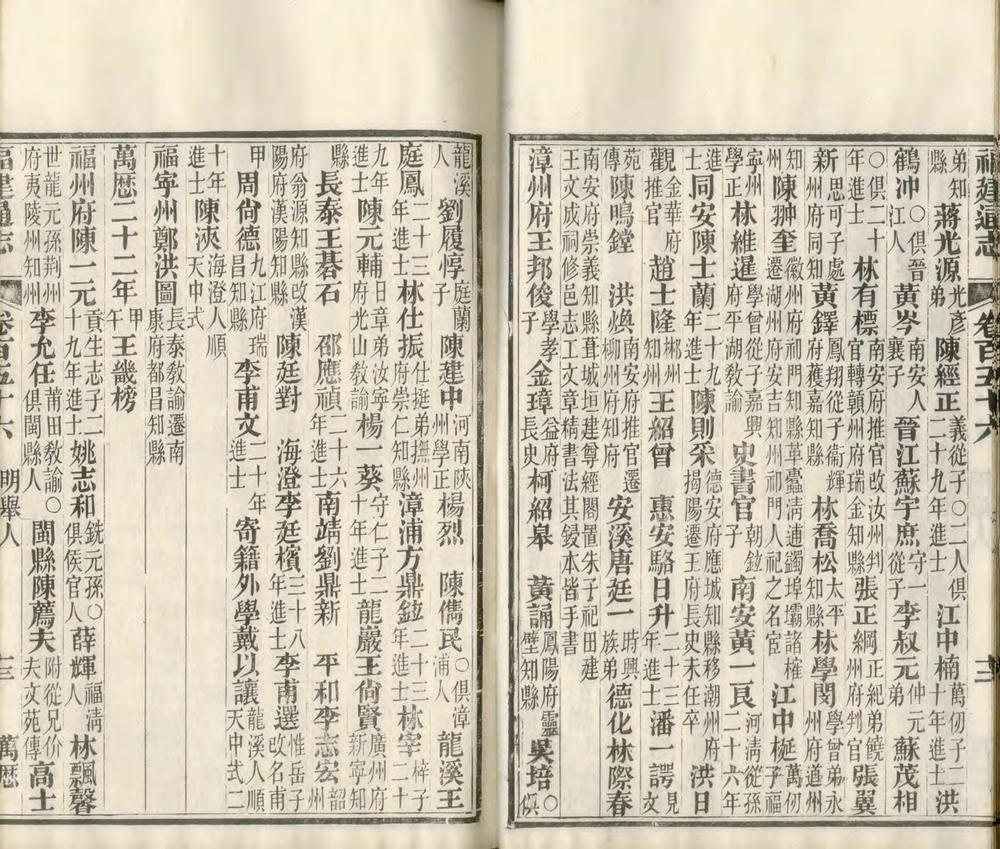 福建通志 卷百五十六 三
弟知縣 蔣光源 光彥弟 陳經正 義從子〇二人俱二十九年進士 江中楠 萬仞子二十年進士 洪
鶴冲 〇俱晉江人 黃岑 南安人襄子 晉江蘇宇庶 守一從子 李叔元 仲元弟 蘇茂相
〇俱二十年進士 林有標 南安府推官改汝州判官轉贛州府瑞金知縣 張正綱 正紀弟饒州府判官 張翼
新 思可子處州府同知 黃鐸 鳳翔從子衞輝府獲嘉知縣 林喬松 太平知縣 林學閔 學曾弟永州府道州
知州 陳翀奎 徽州府祁門知縣革蠹清逋蠲埠壩諸榷遷湖州府安吉知州祁門人祀之名宦 江中梴 萬仞子福
寧州學正 林維暹 學曾從子嘉興府平湖敎諭 史書官 朝鉉子 南安黃一艮 河清從孫二十六年
進士 同安陳士蘭 二十九年進士 陳則采 德安府應城知縣移潮州府揭陽遷王府長史未任卒 洪日
觀 金華府推官 趙士隆 郴州知州 王紹曾 惠安駱日升 二十三年進士 潘一諤 見文
苑傳 陳鳴鏜 洪煥 南安府推官遷柳州府知府 安溪唐廷一 時興族弟 德化林際春
南安府崇義知縣葺城垣建尊經閣置朱子祀田建王文成祠修邑志工文章精書法其鋟本皆手書
漳州府王邦俊 學孝子 金璋 益府長史 柯紹皐 黃誦 鳳陽府靈璧知縣 吳培 〇俱
龍溪人 劉履惇 庭蘭子 陳建中 河南陝州學正 楊烈 陳儁民 〇俱漳浦人 龍溪王
庭鳳 二十三年進士 林仕振 仕挺弟撫州府崇仁知縣 漳浦方鼎鉉 二十三年進士 林宰 梓子二十
九年進士 陳元輔 日章弟汝寧府光山敎諭 楊一葵 守仁子二十年進士 龍巖王尙賢 廣州府新寧知
縣 長泰王碁石 邵應禎 二十六年進士 南靖劉鼎新 平和李志宏 韶州
府翁源知縣改漢陽府漢陽知縣 陳廷對 海澄李廷檳 三十八年進士 李甫選 惟岳子改名甫
甲 周尙德 九江府瑞昌知縣 李甫文 二十年進士 寄籍外學戴以讓 龍溪人順天中式二
十年進士 陳浹 海澄人順天中式
福寧州鄭洪圖 長泰敎諭遷南康府都昌知縣
萬厯二十二年 甲午 王畿榜
福州府陳一元 貢生志子二十九年進士 姚志和 銑元孫〇俱侯官人 薛輝 福淸人 林飄馨
世龍元孫荆州府夷陵州知州 李允任 莆田敎諭〇俱閩縣人 閩縣陳薦夫 附從兄价夫文苑傳 高士
福建通志 卷百五十六 明舉人 三 萬厯